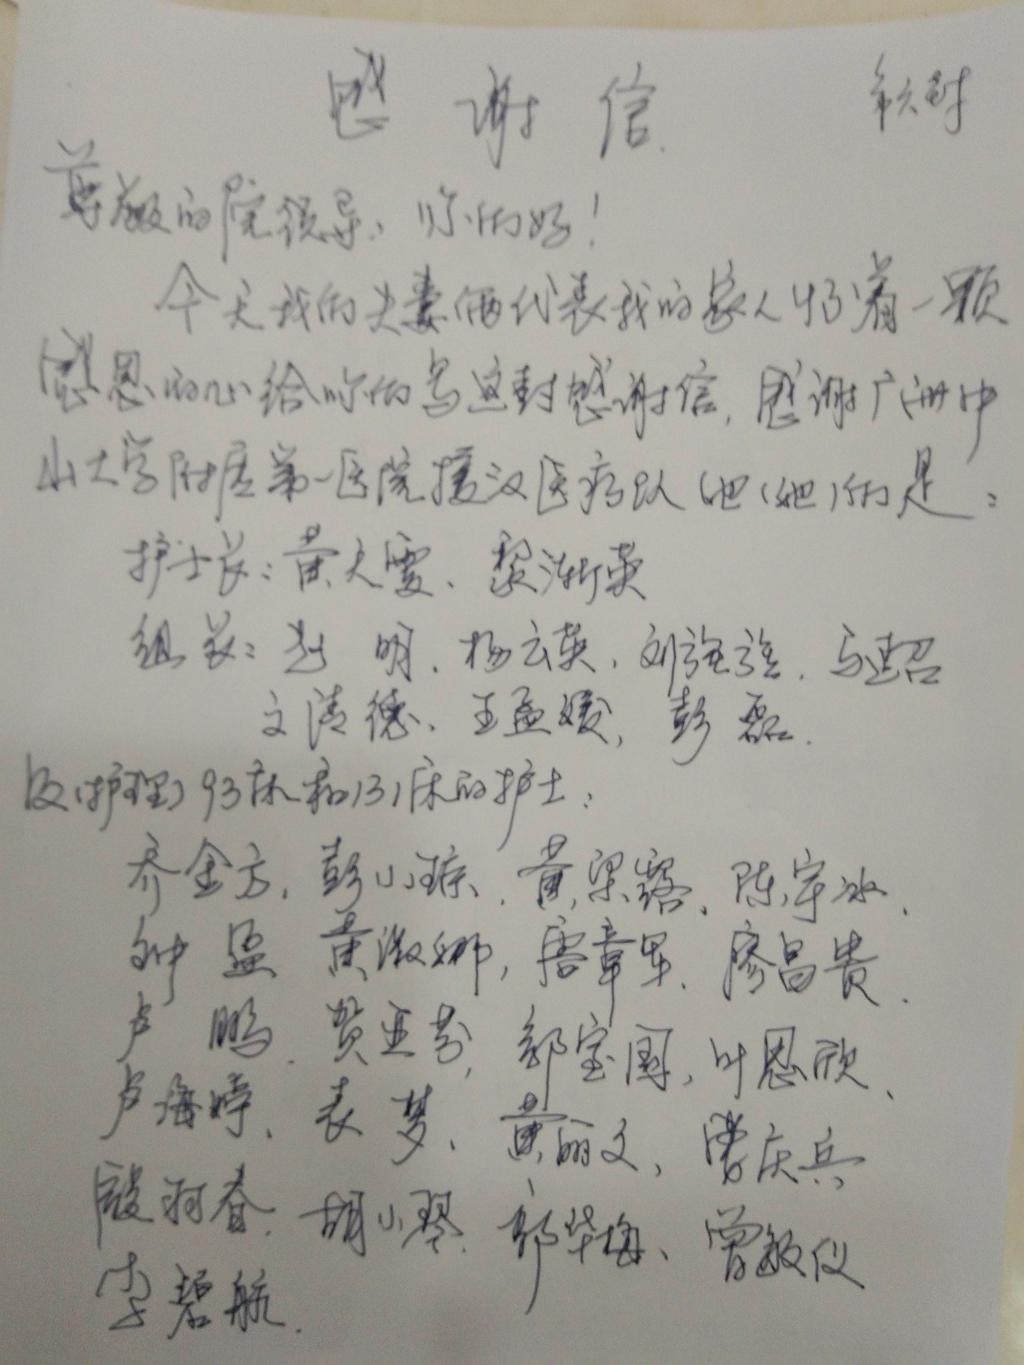 感谢信 第六封
尊敬的院领导、你们好!
今天我们夫妻俩代表我的家人怀着一颗
感恩的心给你们写这封感谢信,感谢广州中
山大学附属第一医院援汉医疗队他(她)们是:
护士长:黄天雯、黎渐英
组长:赵明、杨云英、刘强强、马建超
文清德、王孟媛、彭磊.
及(护理)93床和131床的护士:
乔金方、彭小琼、黄梁露、陈宇冰、
钟孟、黄淑娜,唐章军、廖昌贵、
卢鹏、贺亚芬,郭宝国,叶恩欣、
卢海婷、袁梦、黄丽文、曾庆兵
殷羽春、胡小琴、郭华梅、曾敏仪
李碧航.